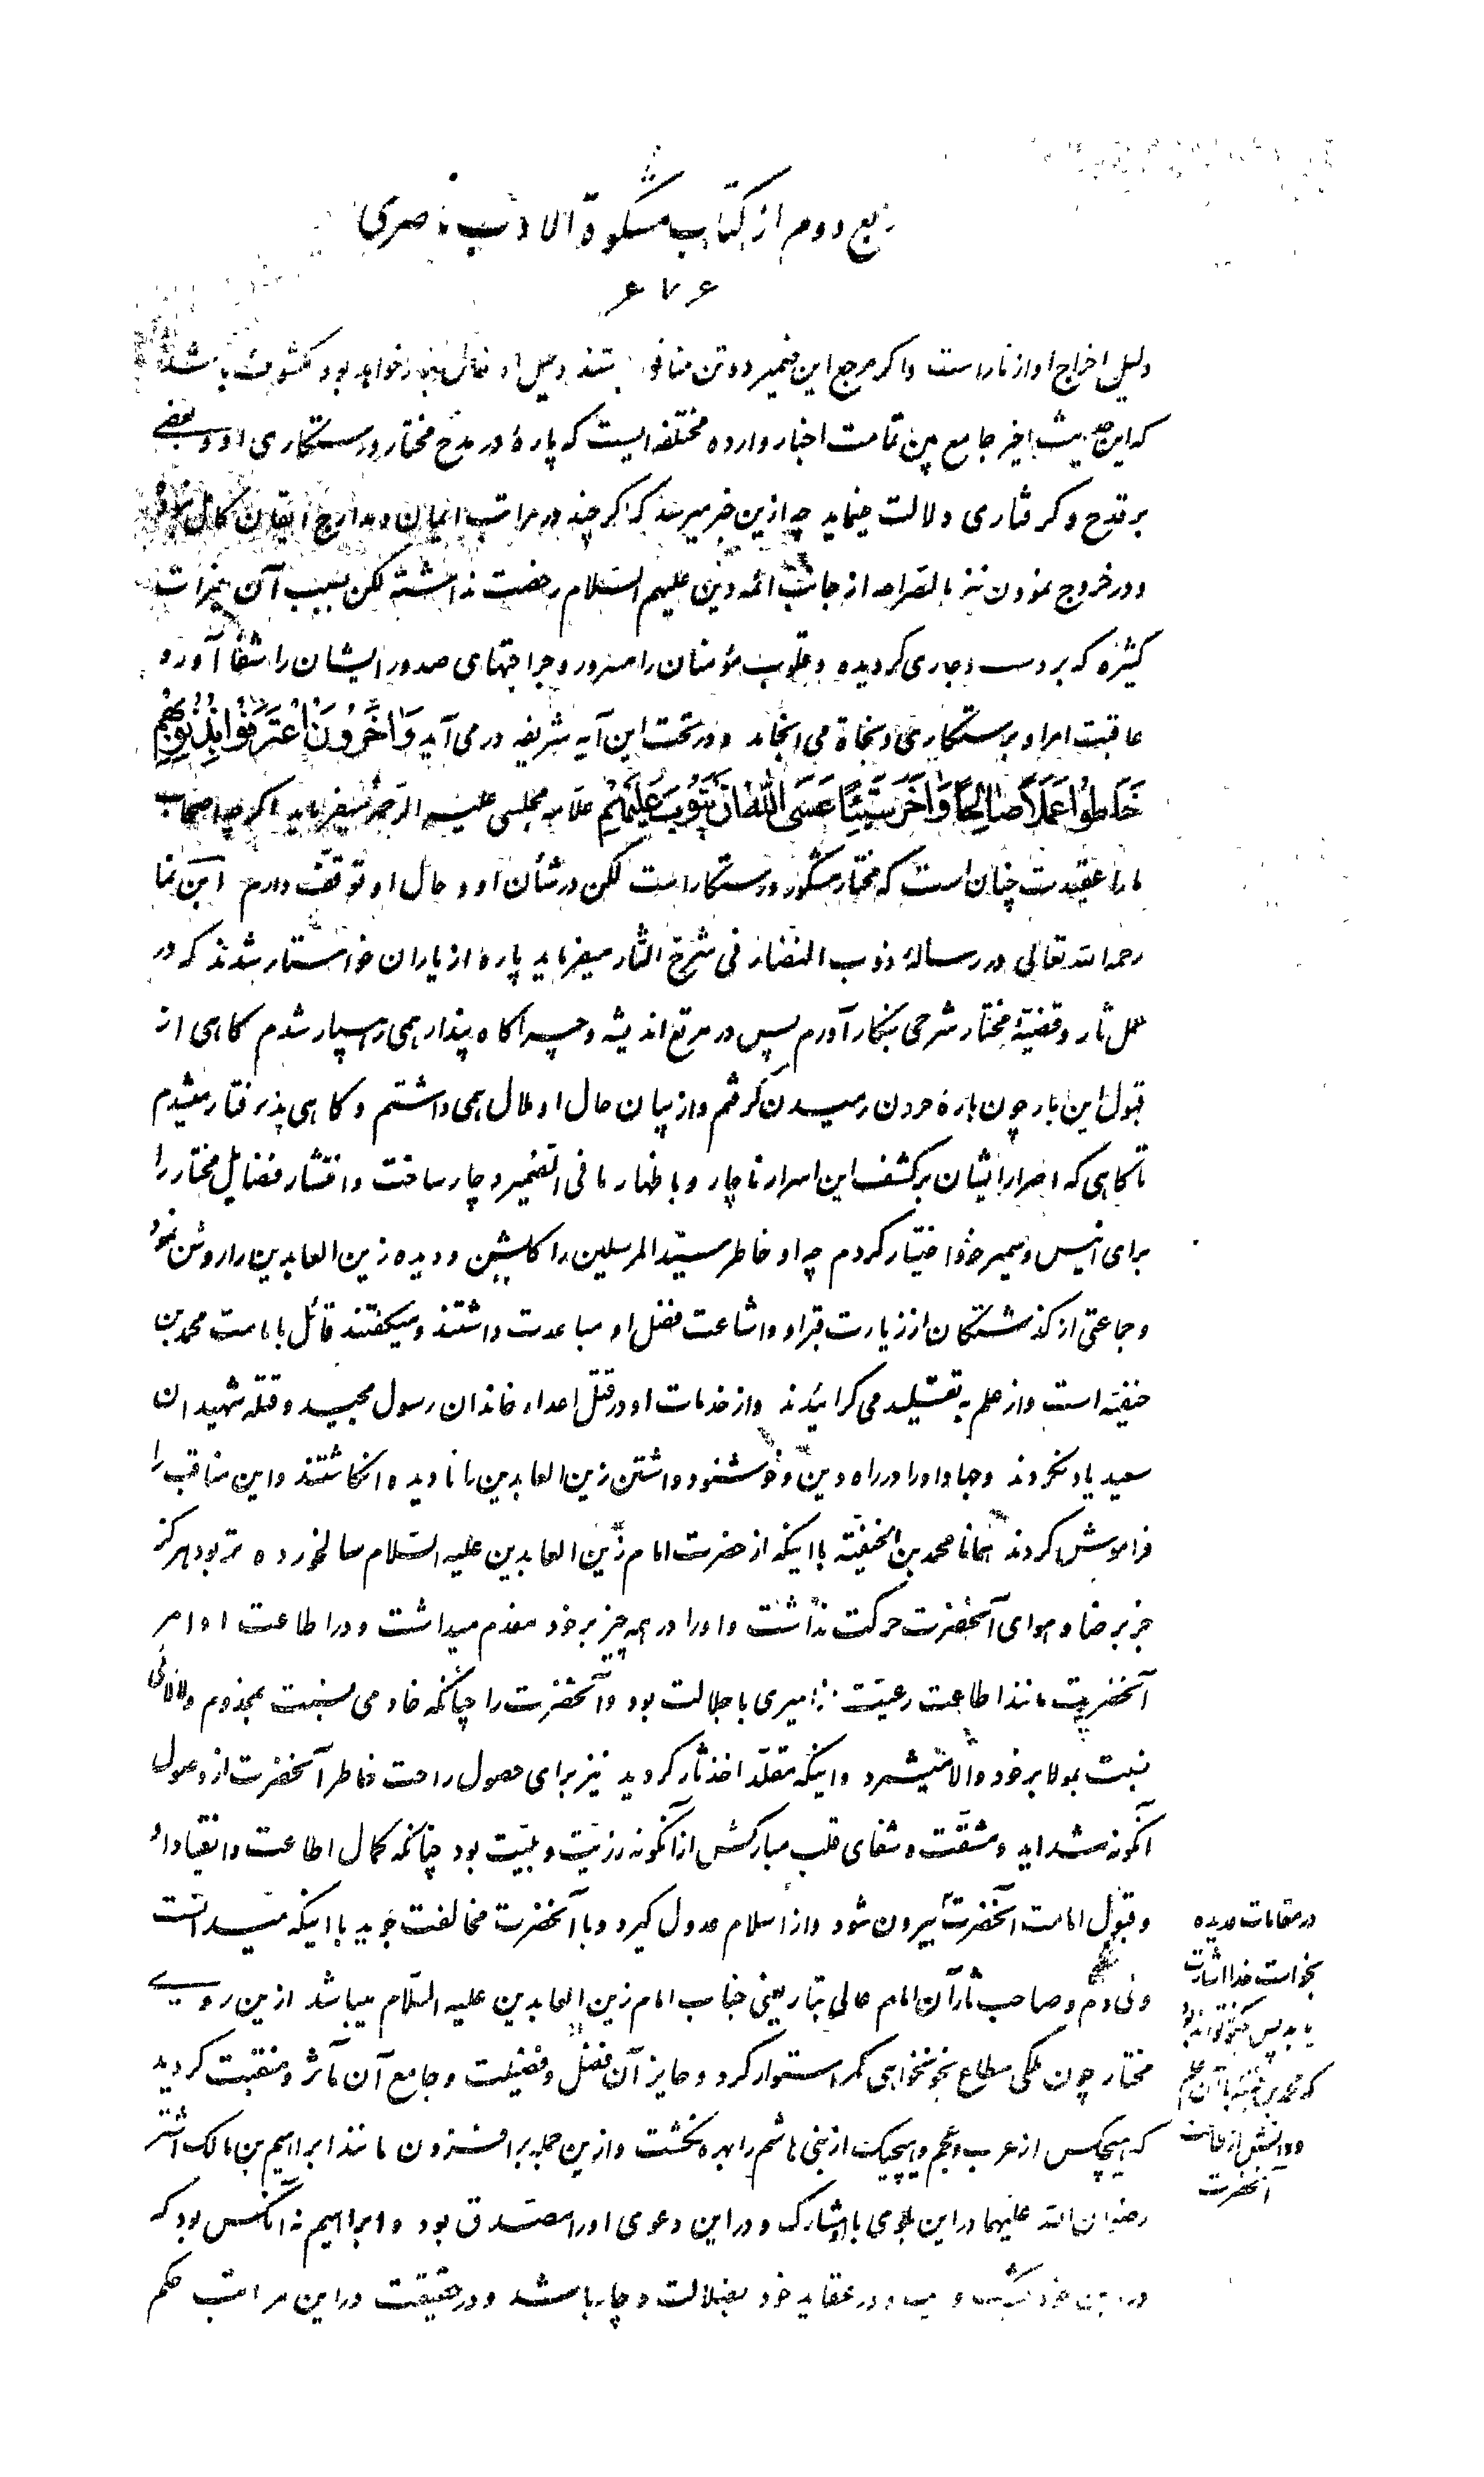 ربع دوم از کتاب مشکوة الادب ناصری
۶۷۶
دلیل اخراج او از نار است و اگر مرجع این ضمیر دو تن منافق دلیل او نخواهد بود مکشوف باشد
که این حدیث اخیر جامع بین تمامت اخبار وارده مختلفه ایست که پارهٔ در مدح مختار و رستکاری او و بعضی
بر قدح و کرفتاری دلالت مینماید چه ازین خبر میرسد که اکر چند در مراتب ایمان و مدارج ایقان کامل نبوده
و در خروج نمودن نیز بالصراحه از جانب ائمه دین علیهم السلام رخصت نداشته لکن بسبب آن خیرات
کثیره که بر دست او جاری کردیده و قلوب مؤمنان را مسرور و جراحتهای صدور ایشان را شفا آورد
عاقبت امر او برستکاری و نجاة می انجامد و در تحت این آیه شریفه در می آید وَآخَرُونَ اعْتَرَفُوا بِذُنُوبِهِمْ
خَلَطُوا عَمَلًا صَالِحًا وَآخَرَ سَيِّئًا عَسَى اللَّهُ أَنْ يَتُوبَ عَلَيْهِمْ علامه مجلسی علیه الرحمه میفرماید اکرچه اصحاب
ما را عقیدت چنان است که مختار مشکور و رستکار است لکن در شأن او و حال او توقف دارم ابن نما
رحمه الله تعالی در رسالهٔ ذوب النضار فی شرح الثار میفرماید پارهٔ از یاران خواستار شدند که در
عمل ثار و قضیهٔ مختار شرحی بنکار آورم پس در مرتع اندیشه و چراکاه پندار همی رهسپار شدم کاهی از
قبول این بار چون بارهٔ حرون رمیدن کرفتم و از بیان حال او ملال همی داشتم و کاهی پذیرفتار میشدم
تا کاهی که اصرار ایشان بر کشف این اسرار ناچار و باظهار ما فی الضمیر دچار ساخت و انتشار فضایل مختار را
برای انیس و سمیر خود اختیار کردم چه او خاطر سید المرسلین را کلشن و دیده زین العابدین را روشن نمود
و جماعتی از کذشتکان از زیارت قبر او و اشاعت فضل او مباعدت داشتند و میکفتند قائل بامامت محمد بن
حنفیه است و از علم به تقلید می کرائیدند و از خدمات او در قتل اعداء خاندان رسول مجید و قتله شهیدان
سعید یاد نکردند و جهاد او را در راه دین و خوشنود داشتن زین العابدین را نادیده انکاشتند و این مناقب را
فراموش کردند همانا محمد بن الحنفیه با اینکه از حضرت امام زین العابدین علیه السلام سالخورده تر بود هرکز
جز بر رضا و هوای آنحضرت حرکت نداشت و او را در همه چیز بر خود مقدم میداشت و در اطاعت اوامر
آنحضرت مانند اطاعت رعیت از امیری با جلالت بود و آنحضرت را چنانکه خادمی نسبت بمخدوم و مولائی
نسبت بمولا بر خود والا میشمرد و اینکه متقلد اخذ ثار کردید نیز برای حصول راحت خاطر آنحضرت از وصول
آنکونه شداید و مشقت و شفای قلب مبارکش از آنکونه رزیت و بلیت بود چنانکه کمال اطاعت و انقیاد او
و قبول امامت آنحضرت بیرون شود و از اسلام عدول کیرد و با آنحضرت مخالفت جوید با اینکه میدانست
ولی دم و صاحب ثار آن امام عالی تبار یعنی جناب امام زین العابدین علیه السلام میباشد ازین روی
مختار چون ملکی مطاع بخونخواهی کمر استوار کرد و حایز آن فضل و فضیلت و جامع آن مآثر و منقبت کردید
که هیچکس از عرب و عجم و هیچیک از بنی هاشم را بهره نکشت و ازین جمله بر افزون مانند ابراهیم بن مالک اشتر
رضوان الله علیهما در این بلوی با او مشارک و در این دعوی او را مصدق بود و ابراهیم نه آنکس بود که
در دین خود و در عقاید خود بضلالت دچار باشد و در حقیقت در این مراتب حکم
در مقامات عدیده
بخواست خدا اشارت
یابد پس چکونه تواند بود
که محمد بن حنفیه با آن علم
و دانش از طاعت
آنحضرت